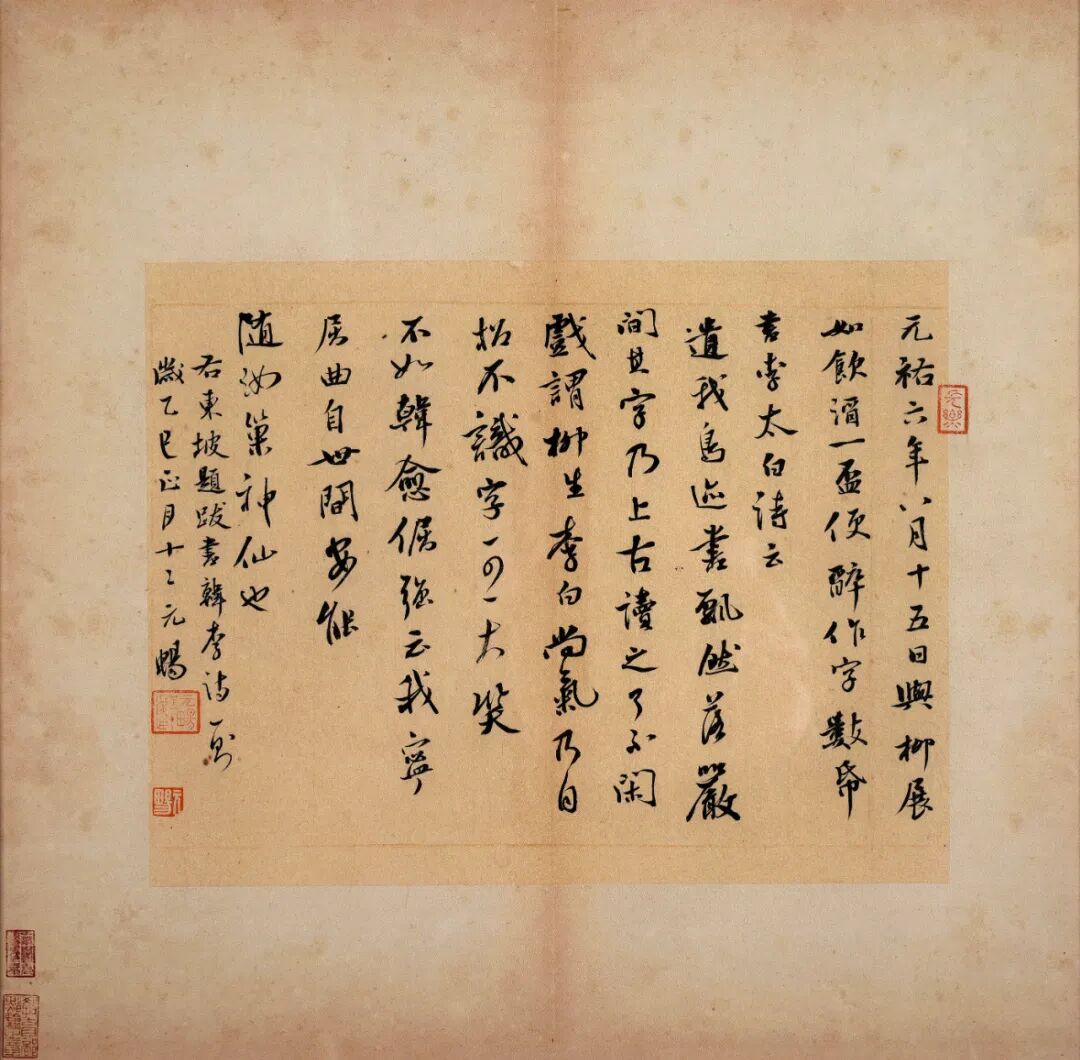 元祐六年八月十五日與柳展
如飲酒一盃便醉作字數帋
書李太白詩云
遺我鳥迹書飄然落巖
間其字乃上古讀之了不閑
戲謂柳生李白尚氣乃自
招不識字可一大笑
不如韓愈倔強云我寧
屈曲自世間安能
隨汝巢神仙也
右東坡題跋書韓李詩一則
歲乙巳正月十二元暢